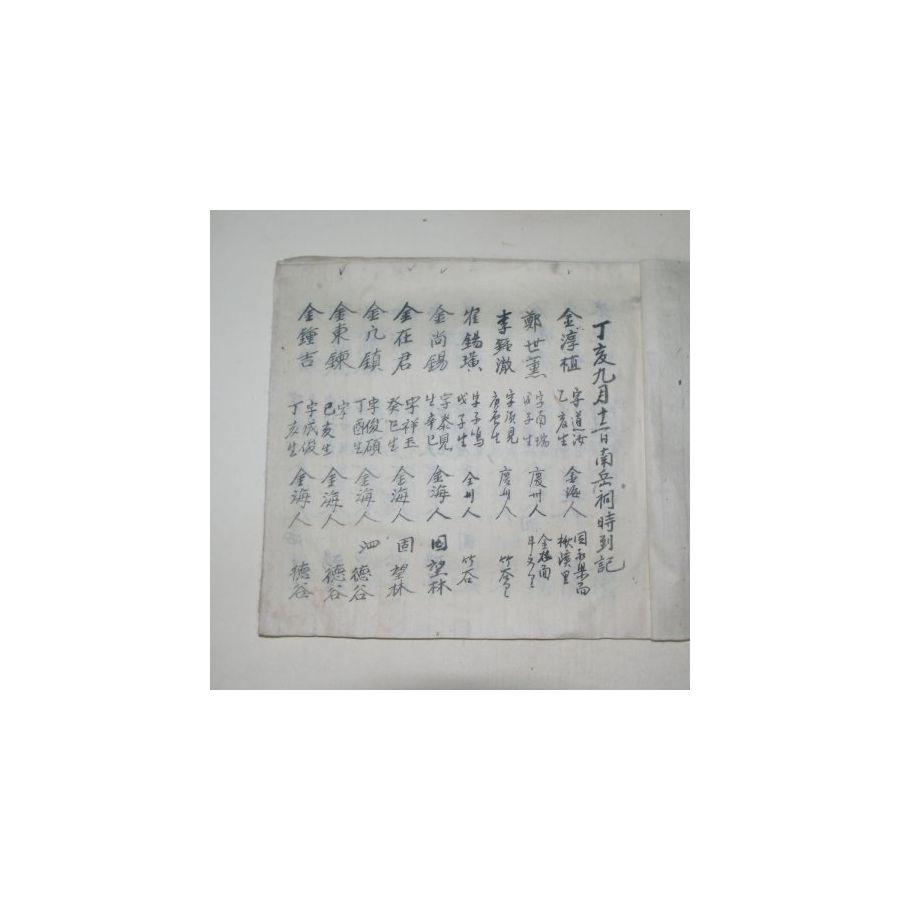 丁亥九月十一日南岳祠時到記
金淳植 字道汝 乙亥生 金海人 固永縣面 里
鄭世薰 字南瑞 戊子生 慶州人 金 面
李鉉澈 字 見 庚 生 慶州人 竹
崔錫璜 字子 戊子生 全州人 竹谷
金尚錫 字泰見 生辛巳 金海人 固望林
金在君 字祥玉 癸巳生 金海人 固望林
金凡鎮 字俊碩 丁酉生 金海人 泗德谷
金東鍊 字 己亥生 金海人 德谷
金鍾吉 字成俊 丁亥生 金海人 德谷